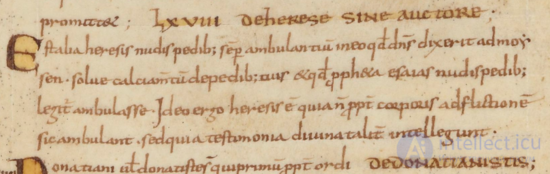 promittet; LXVIII DE HERESE SINE AUCTORE.
Est alia heresis nudis pedib; sep ambulantiū ineo qd dns dixerit ad moy
sen. solue calciam̄tū de pedib; tuis & qd ppheta esaias nudis pedib;
legit̄ ambulasse. Ideo ergo heresis ē quia n̄ ppt corporis adflictionē
sic ambulant. sed quia testimonia diuina talit̄ intellegunt.
Donatiani ul donatistes qui primum ppt ordi DE DONATIANISTIS;
Intellect.icu